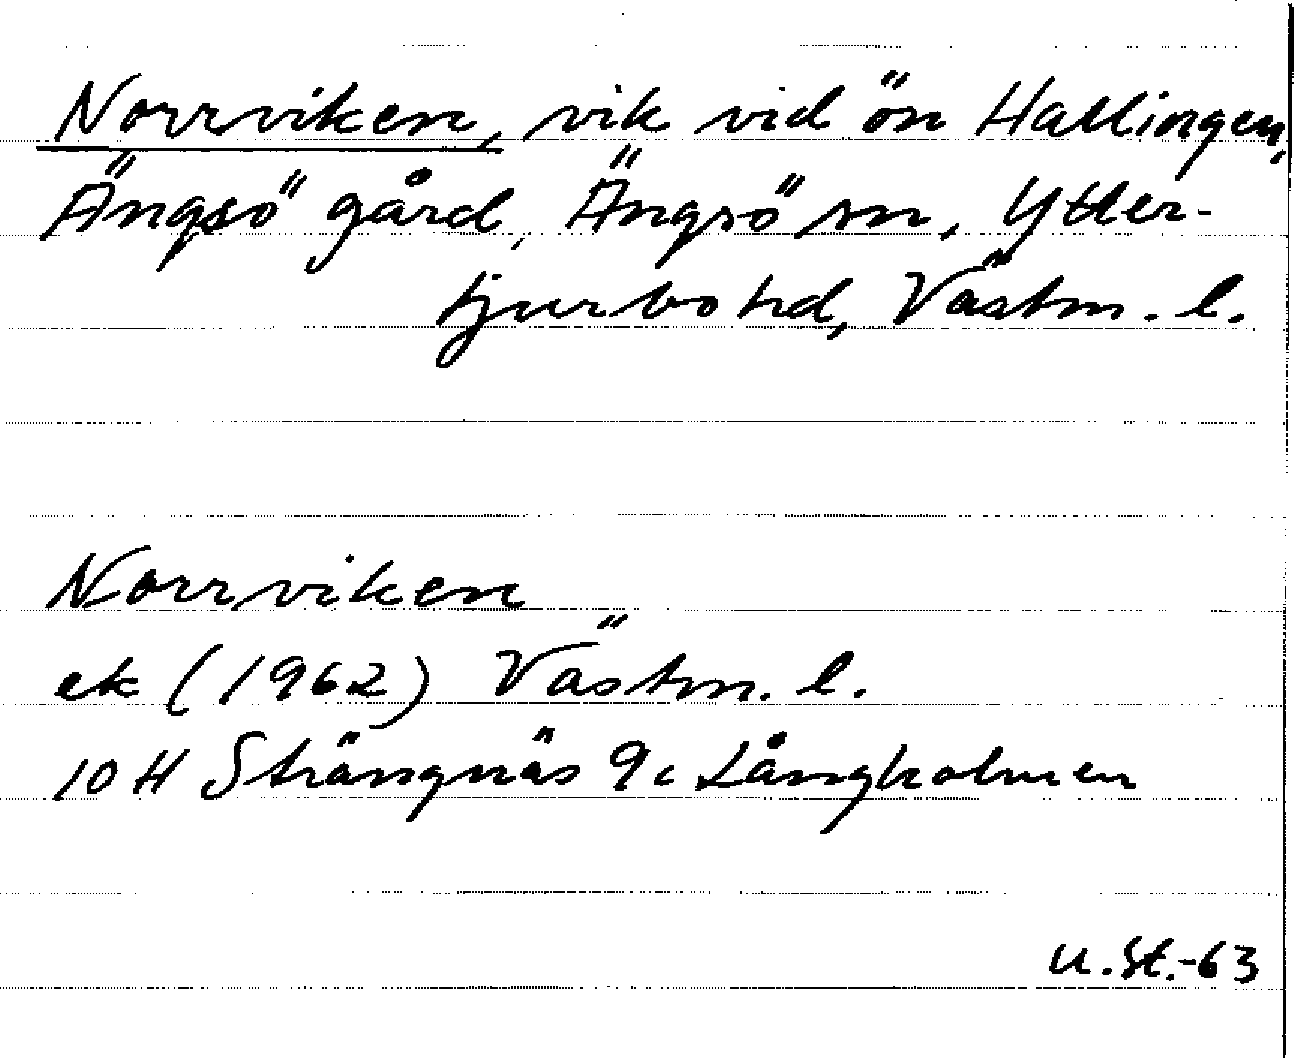 Norrviken, vik vid ön Hallingen,
Ängsö gård, Ängsö sn, Ytter-
tjurbo hd, Västm. l.
Norrviken
ek (1962) Västm. l.
10 H Strängnäs 9c Långholmen
U.St.-63